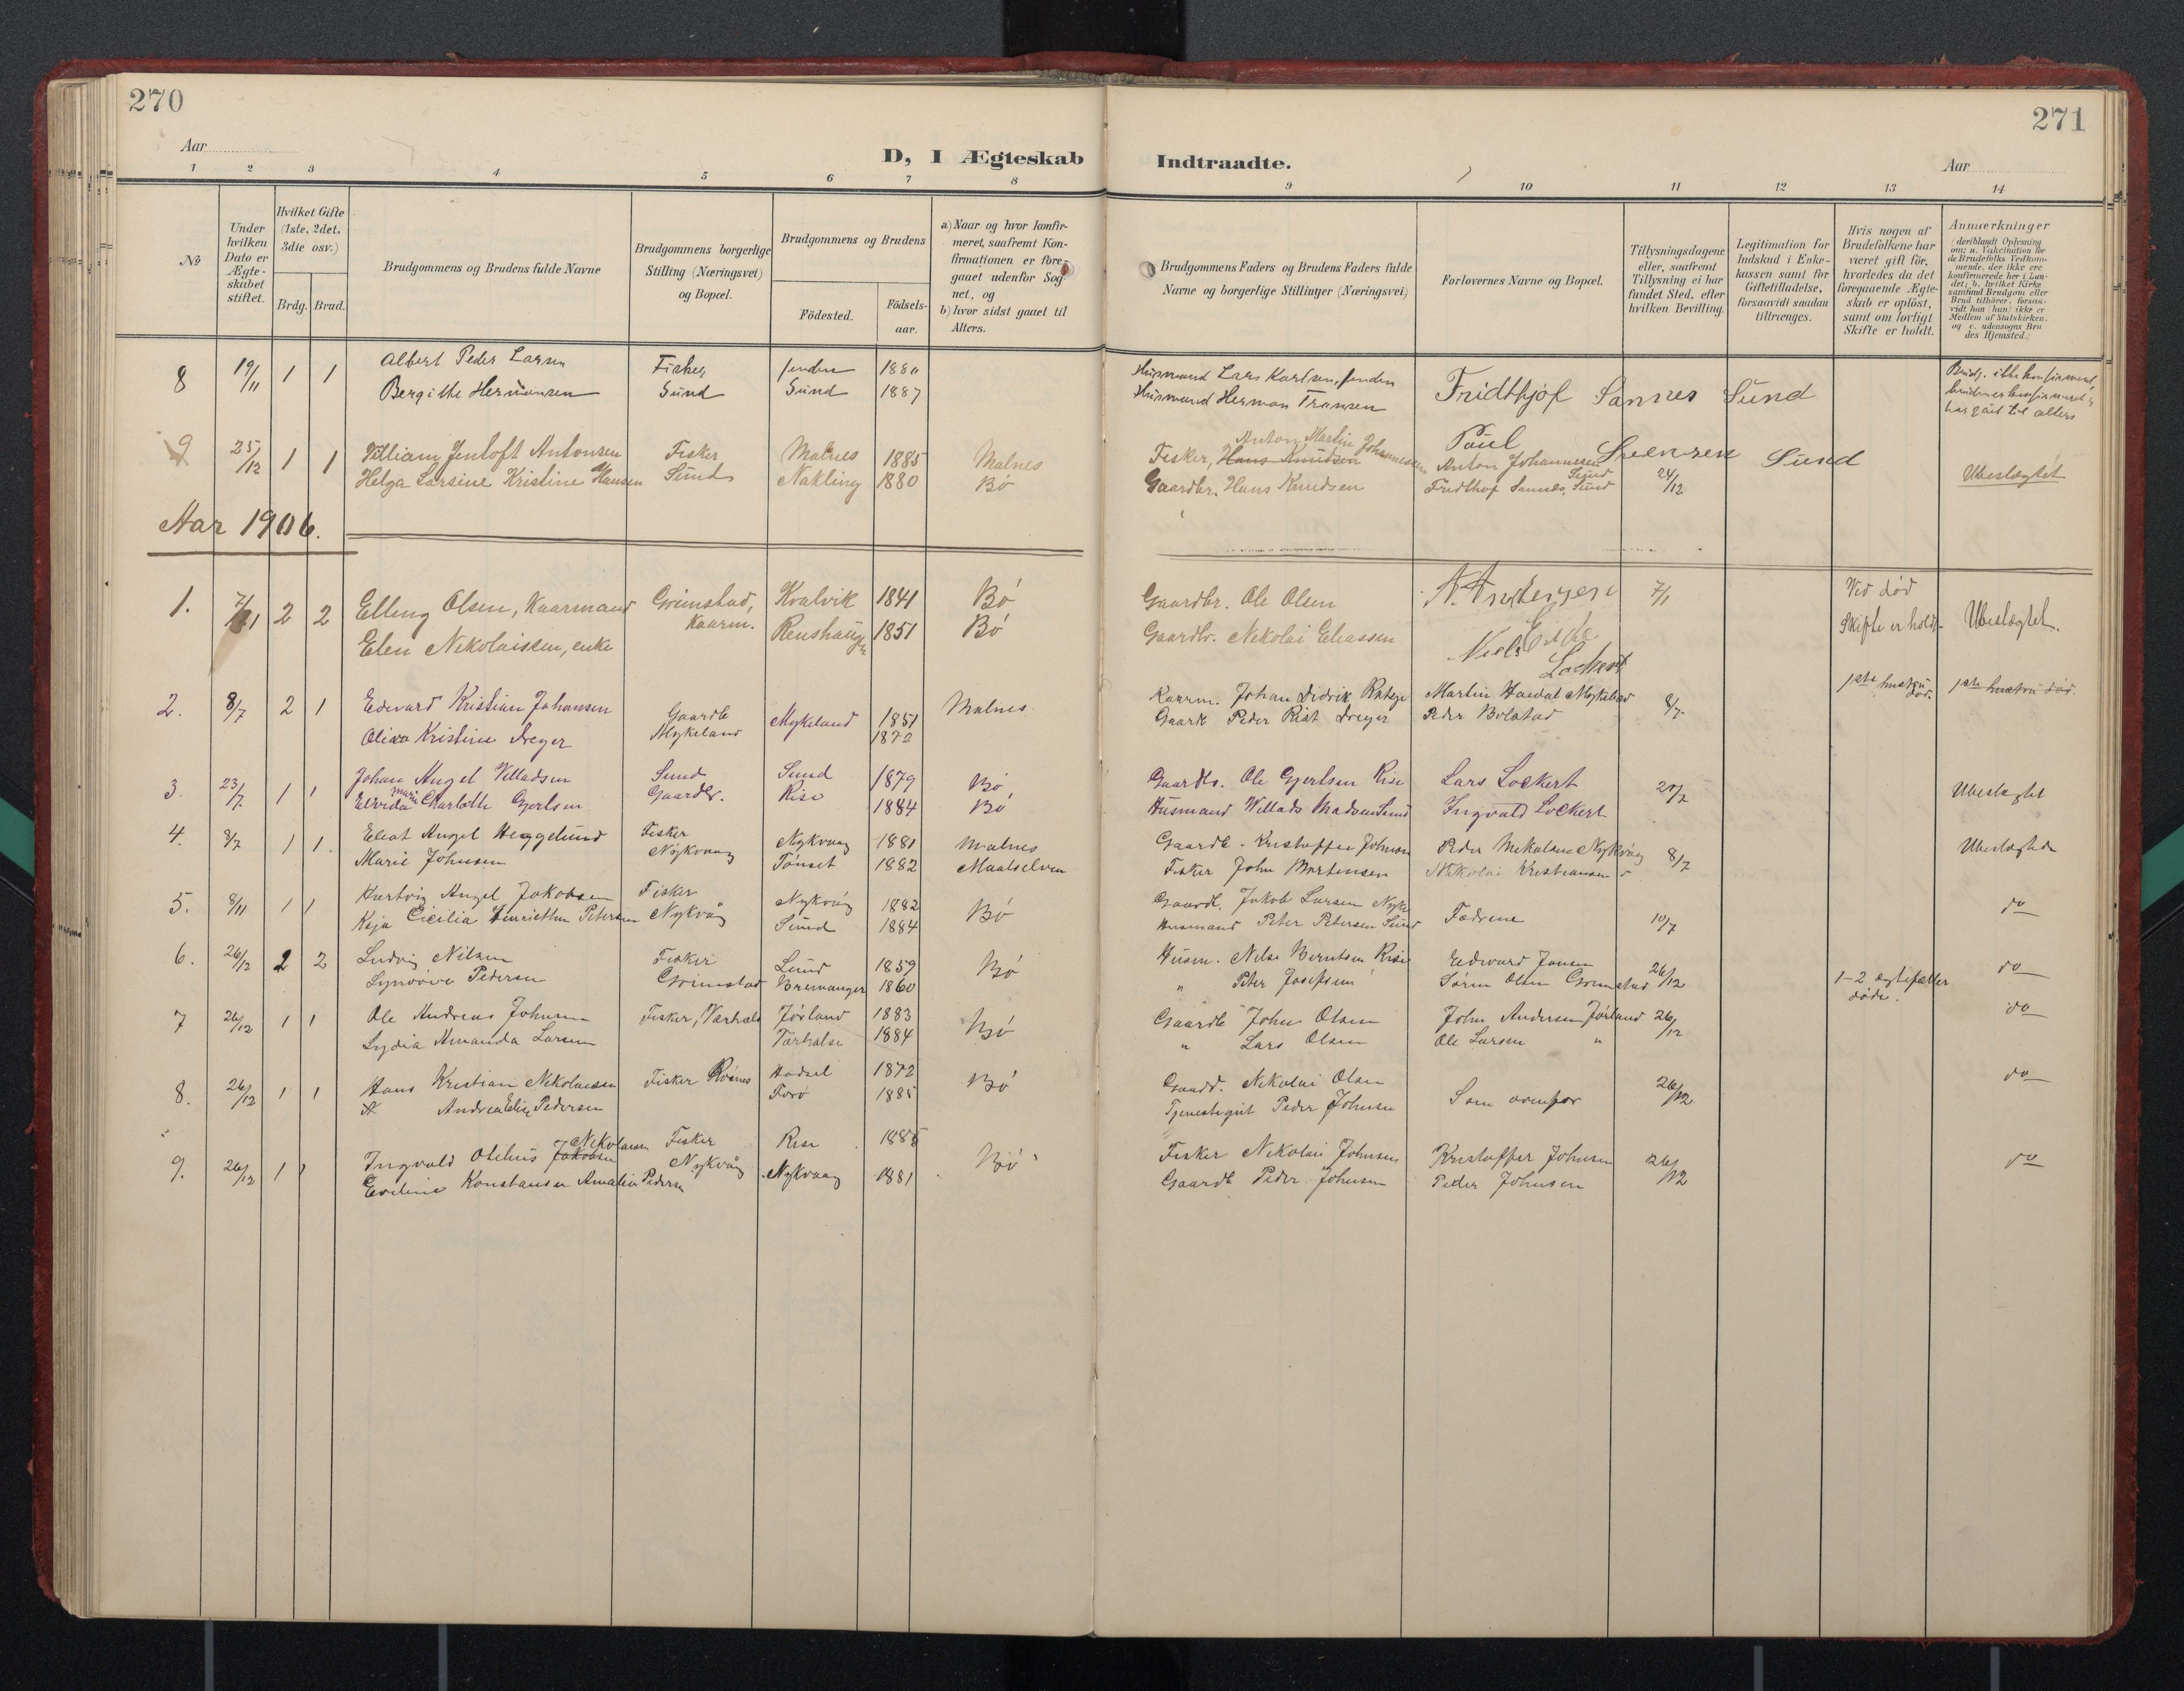 270
271
Aar
D, I Ægteskab Indtraadte.
Aar
1 2 3 4 5 6 7 8 9 10 11 12 13 14
№
Under hvilken Dato er Ægteskabet stiftet.
Hvilket Gifte (1ste, 2det, 3die osv.)
Brdg. Brud.
Brudgommens og Brudens fulde Navne
Brudgommens borgerlige Stilling (Næringsvei) og Bopæl.
Brudgommens og Brudens
Födested.
Födsels-aar.
a) Naar og hvor konfirmeret, saafremt Konfirmationen er foregaaet udenfor Sognet, og
b) hvor sidst gaaet til Alters.
Brudgommens Faders og Brudens Faders fulde Navne og borgerlige Stillinger (Næringsvei)
Forlovernes Navne og Bopæl.
Tillysningsdagene eller, saafremt Tillysning ei har fundet Sted, efter hvilken Bevilling.
Legitimation for Indskud i Enkekassen samt for Giftetilladelse, forsaavidt saadan tiltrænges.
Hvis nogen af Brudefolkene har været gift för, hvorledes da det foregaaende Ægteskab er oplöst, samt om lovligt Skifte er holdt.
Anmærkninger
(deriblandt Oplysning om: a. Vakcination for de Brudefolks Vedkommende, der ikke ere konfirmerede her i Landet; b. hvilket Kirkesamfund Brudgom eller Brud tilhörer, forsaavidt han (hun) ikke er Medlem af Statskirken, og c. udensogns Brudes Hjemsted.)
8 19/11 1 1 Albert Peder Larsen Fisker 1880 Husmand Lars Karlsen, Fridthjof Sannes Sund
Bergitthe Hermansen Sund Sund 1887 Husmand Herman Fransen har gået til alters
9 25/12 1 1 William Jentoft Antonsen Fisker Malnes 1885 Malnes Fisker, Hans Knudsen Anton Martin Johannessen Paul Svensen Sund Anton Johannesen Sund
Helga Larsine Kristine Hansen Sund Nakling 1880 Bö Gaardbr. Hans Knudsen Fridthof Sannes, Sund 24/12 Ubeslægtet
Aar 1906.
1. 7/1 2 2 Elling Olsen, Kaarmand Grimstad, Kvalvik 1841 Bö Gaardbr. Ole Olsen 7/1 Ved död
Elen Nikolaisen, enke Kaarm. Renshaugen 1851 Bö Gaardbr. Nikolai Eliassen Niels Lockert Skifte er holdt. Ubeslægtet.
2. 8/7 2 1 Edevard Kristian Johansen Gaardb Mykeland 1851 Malnes Kaarm. Johan Didrik Martin Mykeland 8/7 1ste hustru död. 1ste hustru död.
Kristine Dreyer Mykeland 1872 Gaardb Peder Rist Dreyer Peder Bolstad
3. 23/7 1 1 Johan Angel Villadsen Sund Sund 1879 Bö Gaardb. Ole Gjertsen Rise Lars Lockert Ubeslægtet
Elvida Marie Charlotte Gjertsen Gaardbr. Rise 1884 Bö Husmand Willads Madsen Sund Ingvald Lockert
4. 8/7 1 1. Eliot Angel Heggelund Fisker Nykvaag 1881 Malnes Gaardb. Kristoffer Johnsen Peder Nikolaisen Nykvåg 8/7 Ubeslægtede
Marie Johnsen Nykvaag Tönset 1882 Maalselven Fisker John Mortensen Nikolai Kristiansen
5. 8/11 1 1 Hartvig Angel Jakobsen Fisker Nykvåg 1882 Bö Gaardb. Jakob Larsen Fædrene 10/7 do
Kaja Cicilia Henriethe Petersen Nykvåg Sund 1884 Husmand Peter Petersen Sund
6. 26/12 2 2 Ludvig Nilsen Fisker Sund 1859 Bö Husm. Nils Berntsen Rise Edvard Jansen 26/12 1-2 ægtefæller döde. do
Synnöve Pedersen Grimstad Bremanger 1860 " Peter Josefsen Sören Olsen Grimstad
7 26/12 1 1 Ole Andreas Johnsen Fisker, Jörland 1883 Bö Gaardb John Olsen John Andersen Jörland 26/12 do
Lydia Amanda Larsen 1884 " Lars Olsen Ole Larsen "
8. 26/12 1 1 Hans Kristian Nikolaisen Fisker Hadsel 1872 Bö Gaardb. Nikolai Olsen Som ovenfor 26/12 do
Andrea Elise Pedersen 1885 Tjenestegut Peder Johnsen
9. 26/12 1 1 Ingvald Otelius Jakobsen Nikolaisen Fisker Rise 1886 Bö Fisker Nikolai Johnsen Kristoffer Johnsen 26/12 do
Eveline Konstanse Amalia Pedersen Nykvåg Nykvaag 1881 Gaardb Peder Johnsen Peder Johnsen